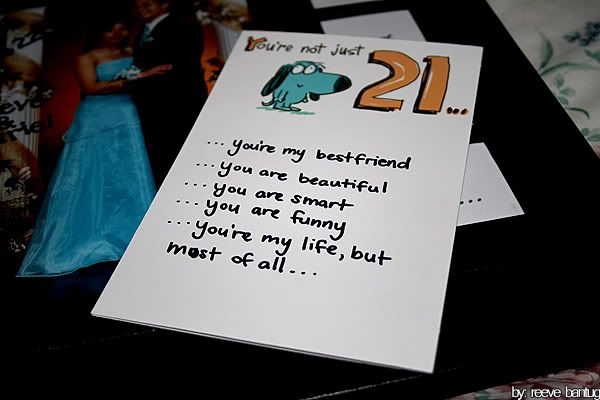 You're not just
21...
... you're my bestfriend
... you are beautiful
... you are smart
... you are funny
... you're my life, but
most of all...
by: reeve bantug